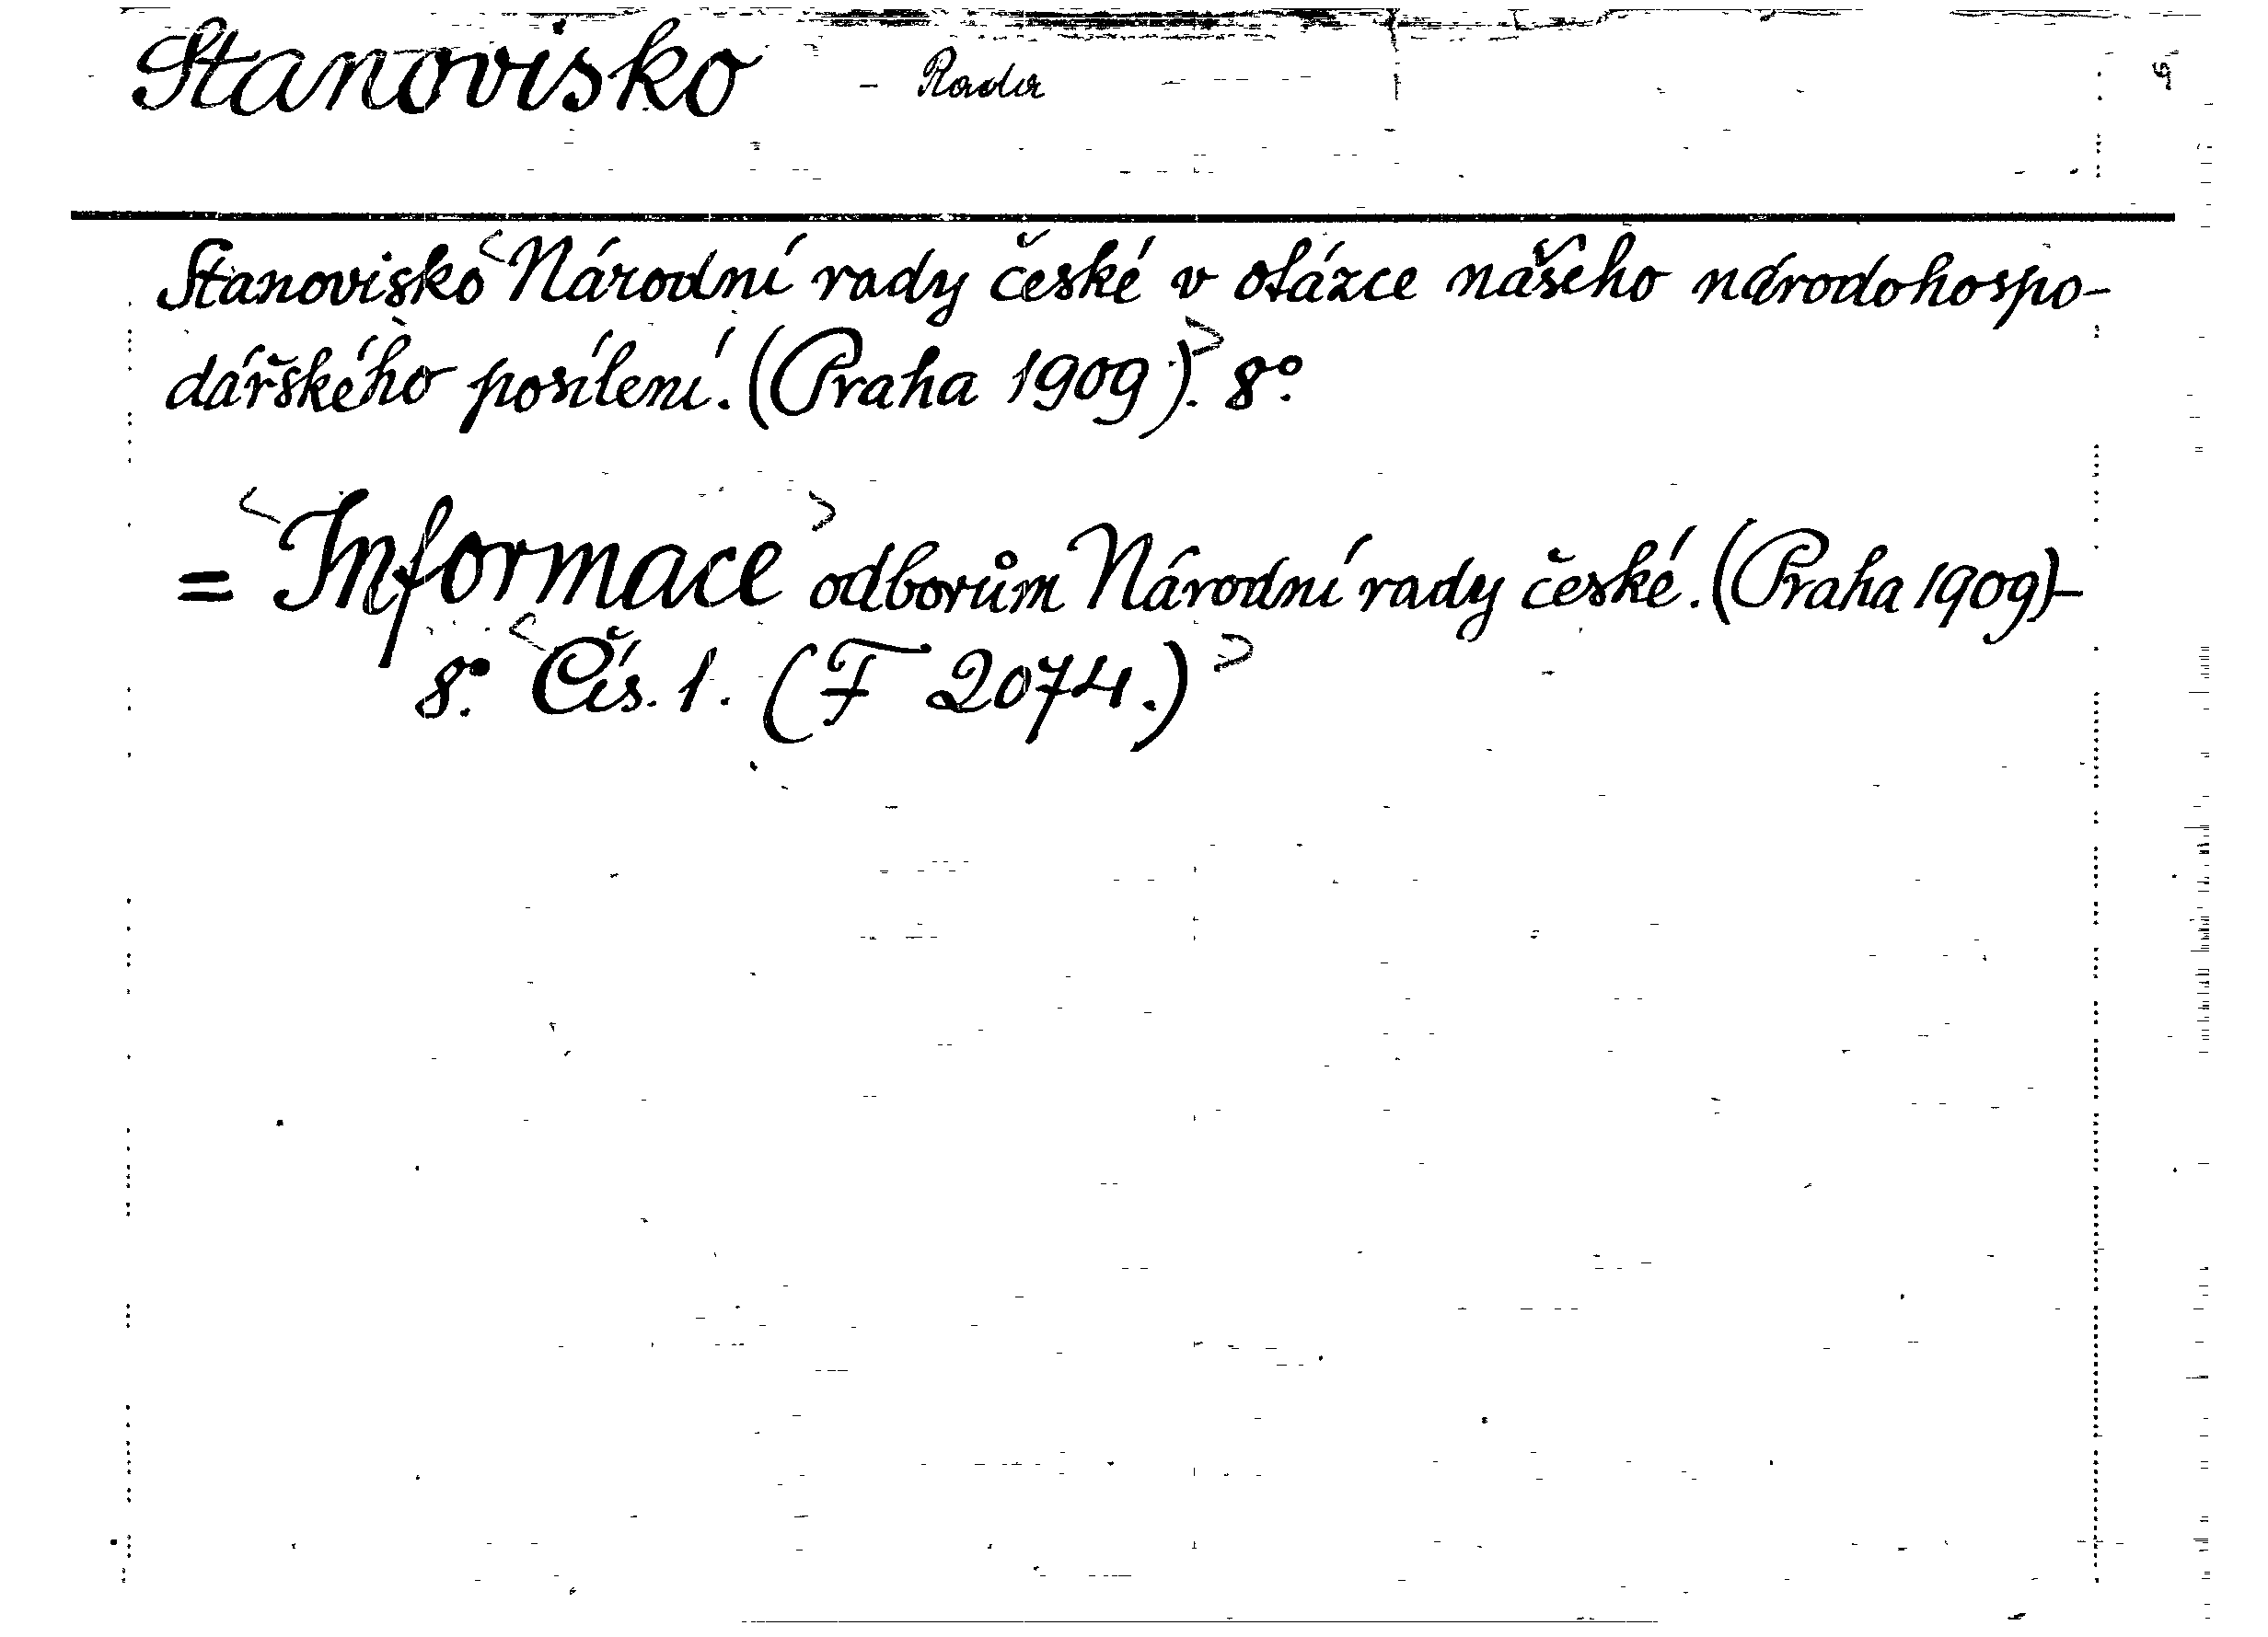 Stanovisko - Rada
Stanovisko Národní rady české v otázce našeho národohospo-
dářského posílení. (Praha 1909). 8°.
= Informace odborům Národní rady české. (Praha 1909)-
8°. Čís. 1. (F 2074.)